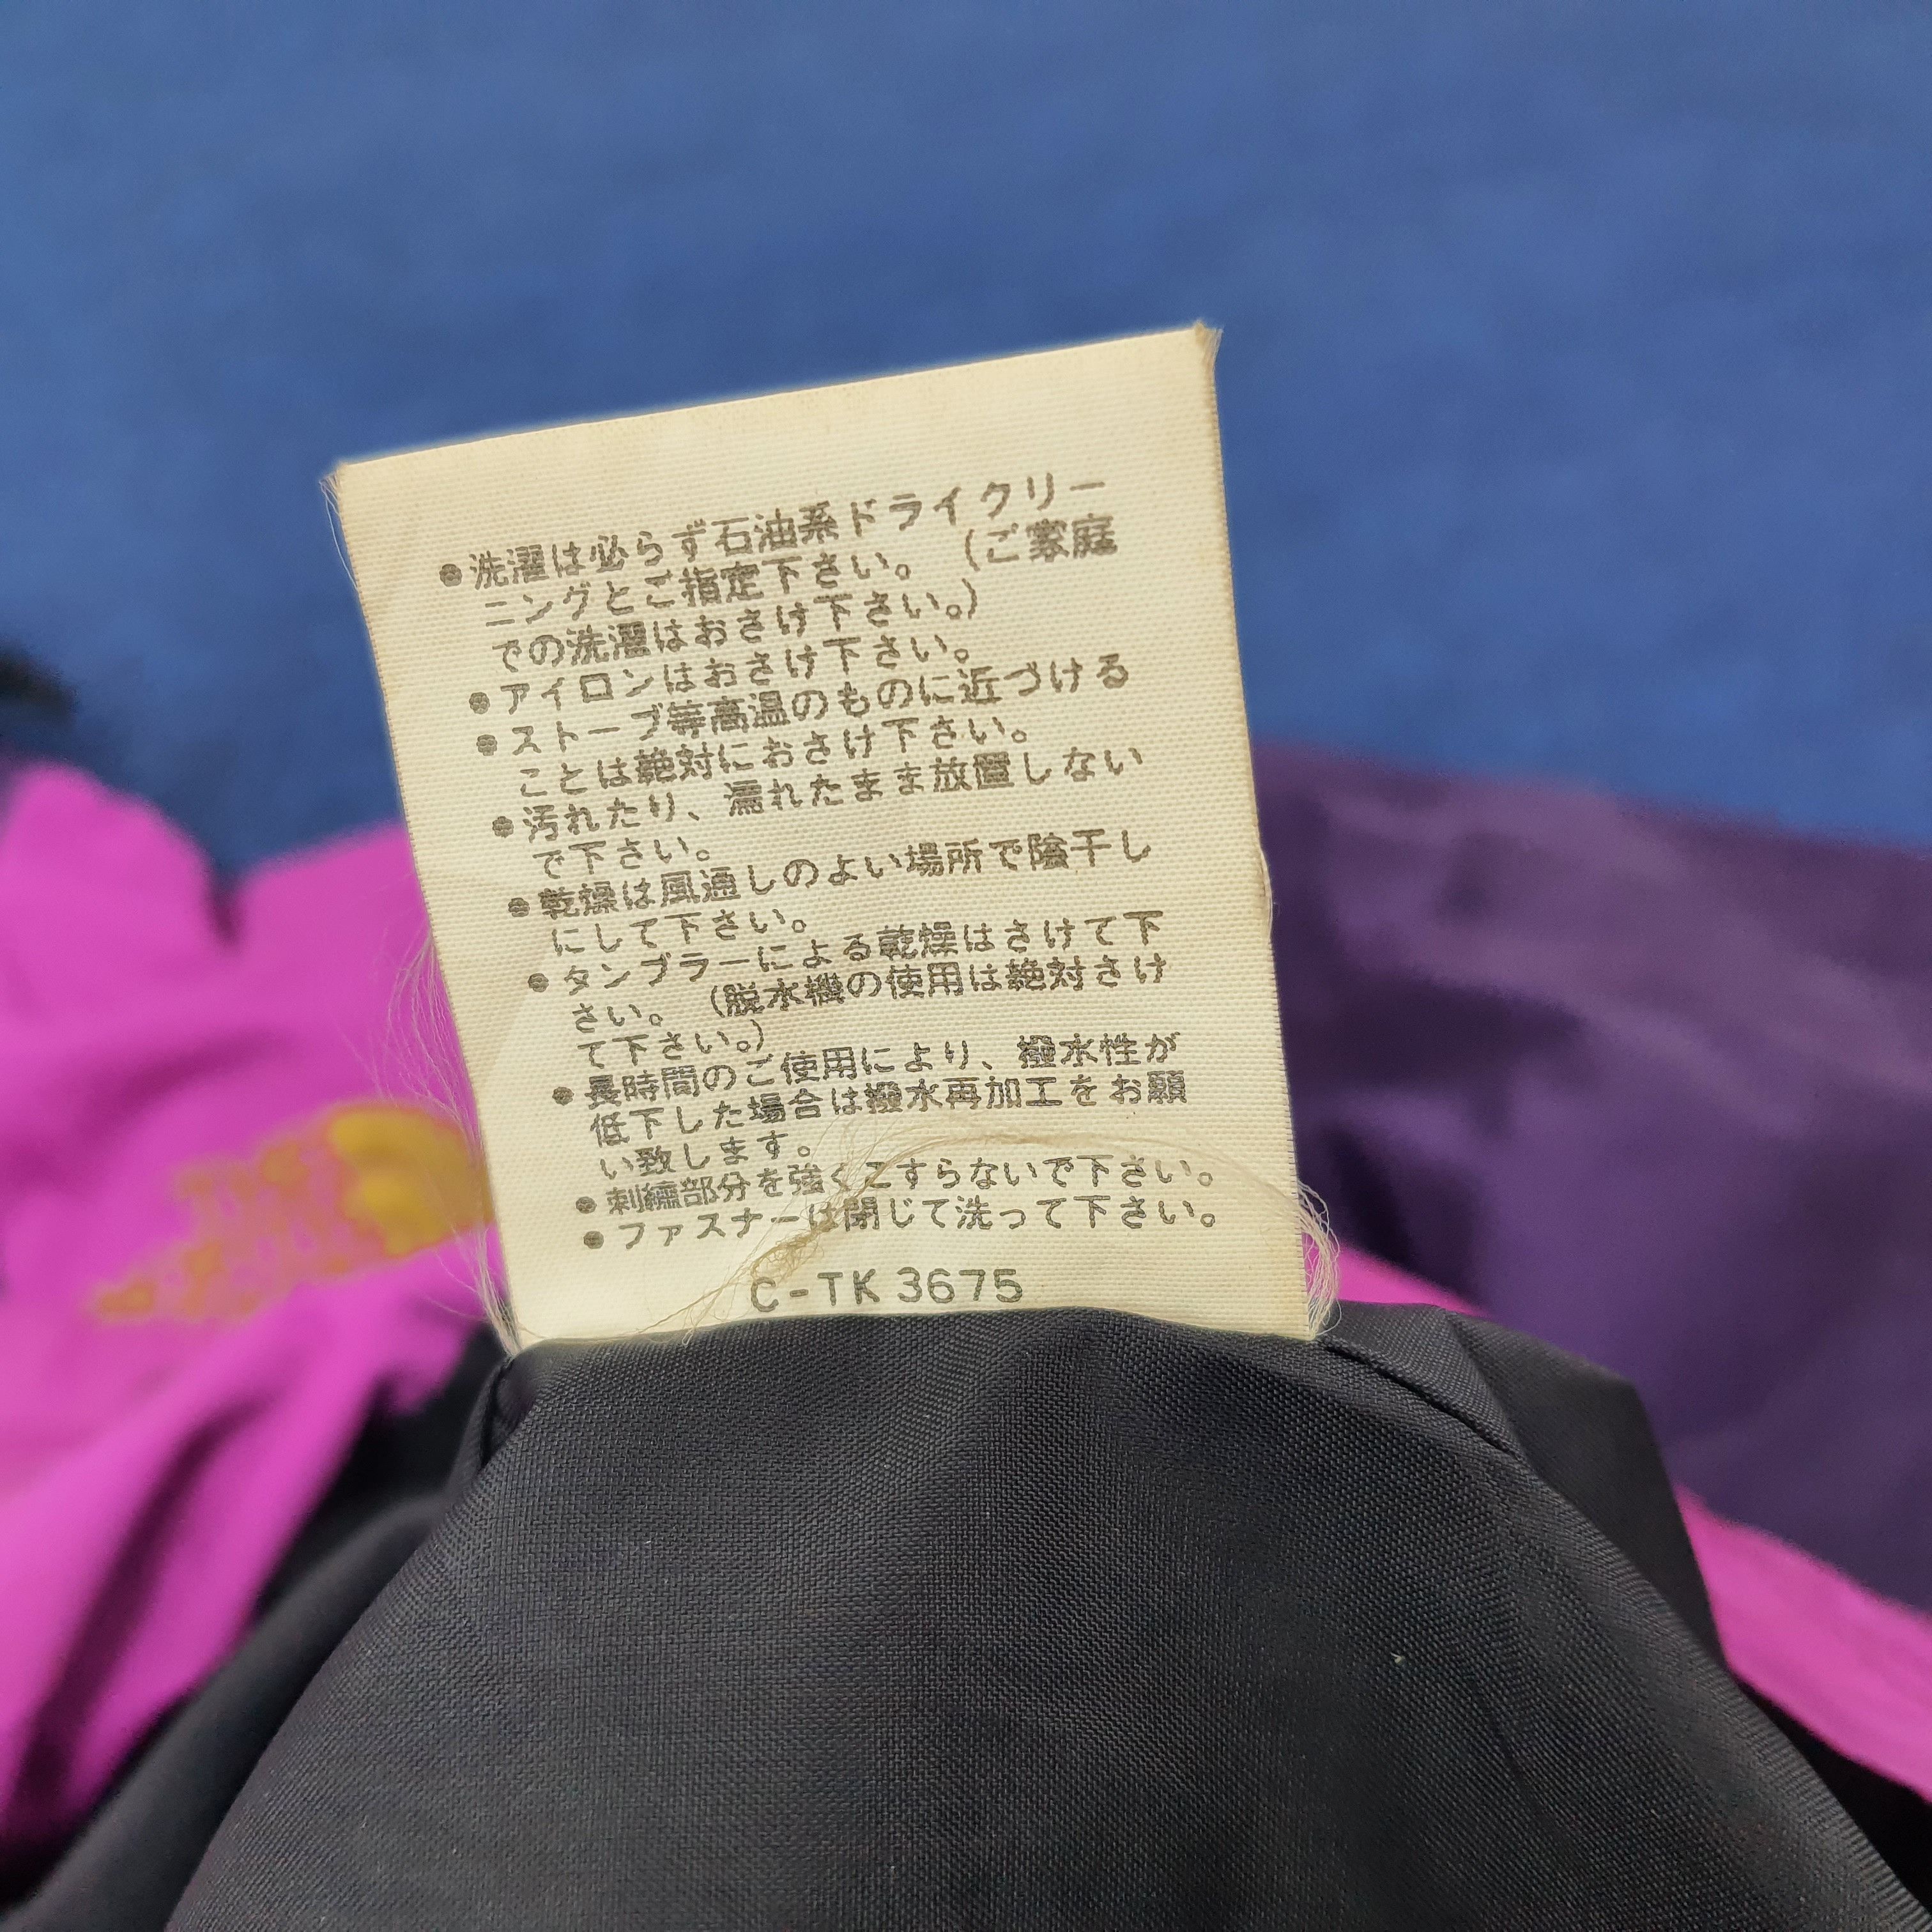 ●洗濯は必らず石油系ドライクリー
ニングとご指定下さい。（ご家庭
での洗濯はおさけ下さい。）
●アイロンはおさけ下さい。
●ストーブ等高温のものに近づける
ことは絶対におさけ下さい。
●汚れたり、濡れたまま放置しない
で下さい。
●乾燥は風通しのよい場所で陰干し
にして下さい。
●タンブラーによる乾燥はさけて下
さい。（脱水機の使用は絶対さけ
て下さい。）
●長時間のご使用により、撥水性が
低下した場合は撥水再加工をお願
い致します。
●刺繍部分を強くこすらないで下さい。
●ファスナーは閉じて洗って下さい。
C-TK 3675